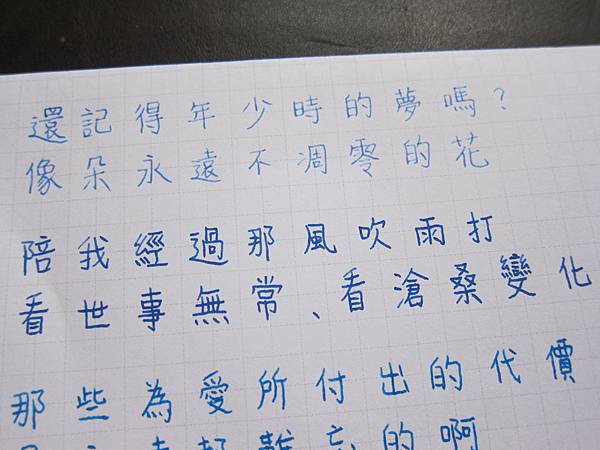 還記得年少時的夢嗎?
像朵永遠不凋零的花
陪我經過那風吹雨打
看世事無常、看滄桑變化
那些為愛所付出的代價
難忘的啊